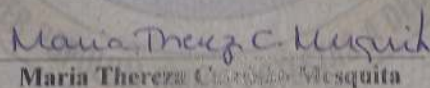 Maria Therez C. Mesquita
Maria Thereza Mesquita